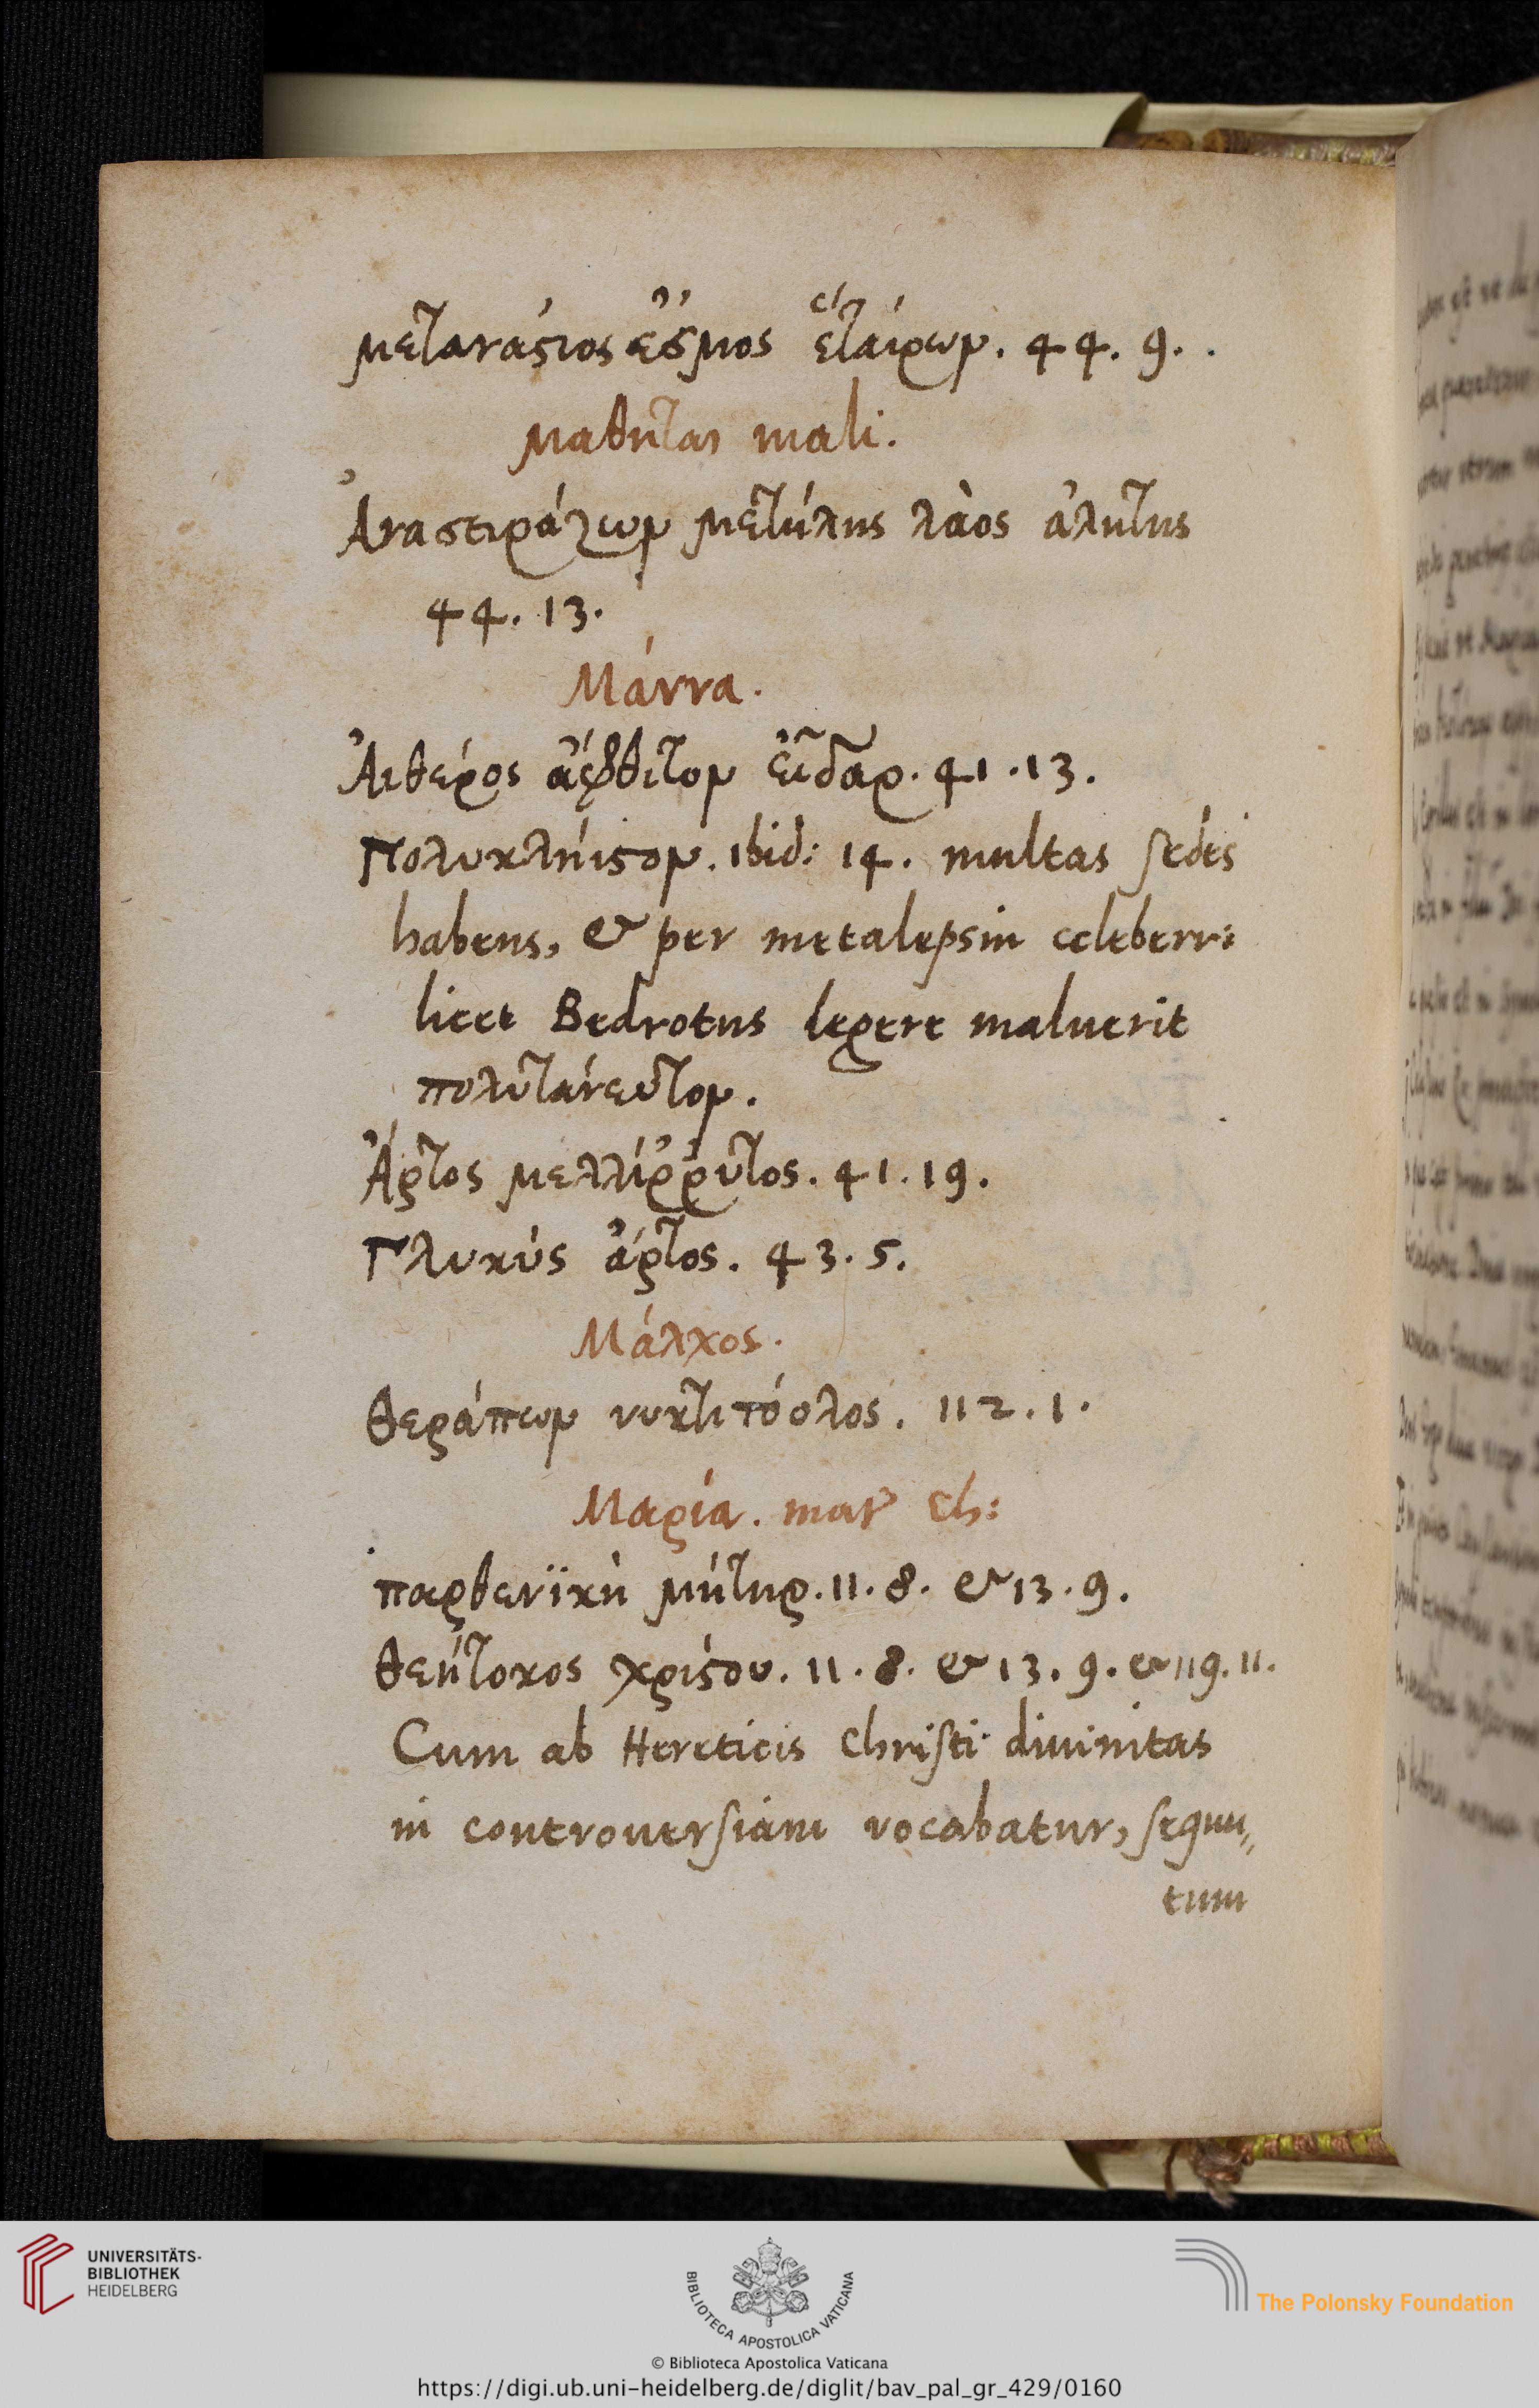 μεταναστιος ἑσμὸς ἑταίρων. 44. 9.
Μαθηται mali.
Ἀνασειράζων μετήλυς λαὸς ἀλήτης
44. 13.
Μάννα.
Ἀιθέρος ἄφθιτον εἶδαρ. 41. 13.
Πολυκλήιστον. ibid: 14. multas sedes
habens, & per metalepsin celeberri:
licet Bedrotus legere maluerit
πολυτάνευτον.
Ἄρτος μελίρρυτος. 41. 19.
Γλυκύς ἄρτος. 43. 5.
Μάλχος.
Θεράπων νυκτιπόολος. 112. 1.
Μαρία. matr Ch:
παρθενϊκὴ μήτηρ. 11. 8. & 13. 9.
Θεήτοκος χριστου. 11. 8. & 13. 9. & 119. 11.
Cum ab Hereticis Christi divinitas
in controuersiam vocabatur, sequu„
tum
UNIVERSITÄTS-
BIBLIOTHEK
HEIDELBERG
BIBLIOTECA APOSTOLICA VATICANA
The Polonsky Foundation
© Biblioteca Apostolica Vaticana
https://digi.ub.uni-heidelberg.de/diglit/bav_pal_gr_429/0160